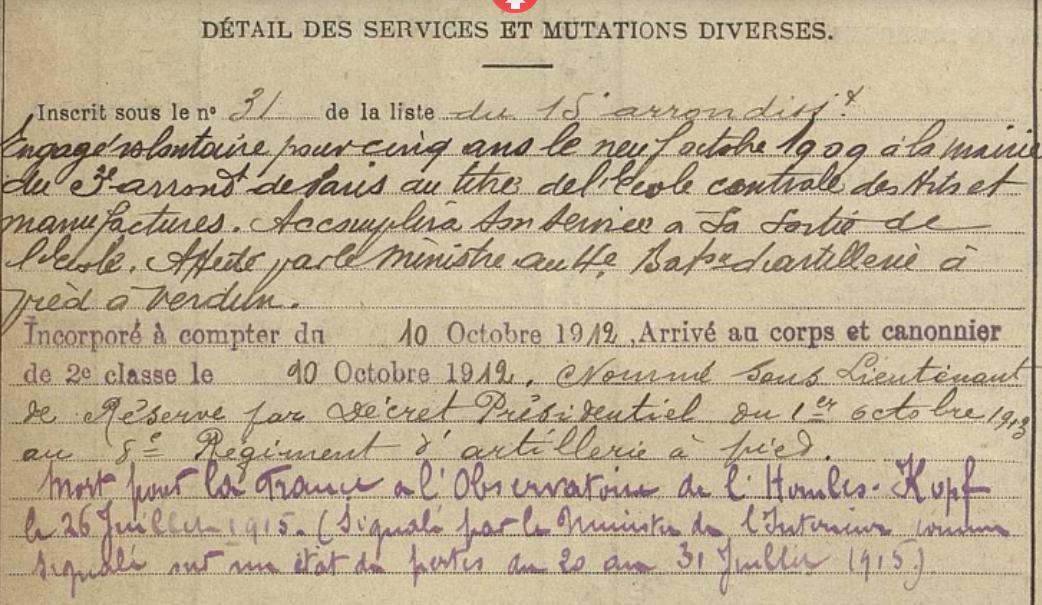 DÉTAIL DES SERVICES ET MUTATIONS DIVERSES.
Inscrit sous le nº 31 de la liste du 15e arrondisst
Engagé volontaire pour cinq ans le neuf octobre 1909 à la mairie
du 3e arrondt de Paris au titre de l'école centrale des Arts et
manufactures. Accomplira son service à sa sortie de
l'école. Affecté par le Ministre au 4e Baton d'artillerie à
pied à Verdun.
Incorporé à compter du 10 Octobre 1912, Arrivé au corps et canonnier
de 2e classe le 10 Octobre 1912. Nommé sous Lieutenant
de Réserve par Décret Présidentiel du 1er octobre 1913
au 8e Régiment d'artillerie à pied.
Mort pour la France à l'Observatoire de l' Kopf
le 26 Juillet 1915. (Signalé par le Ministre de l'Intérieur comme
signalé sur un état de pertes du 20 au 31 Juillet 1915)